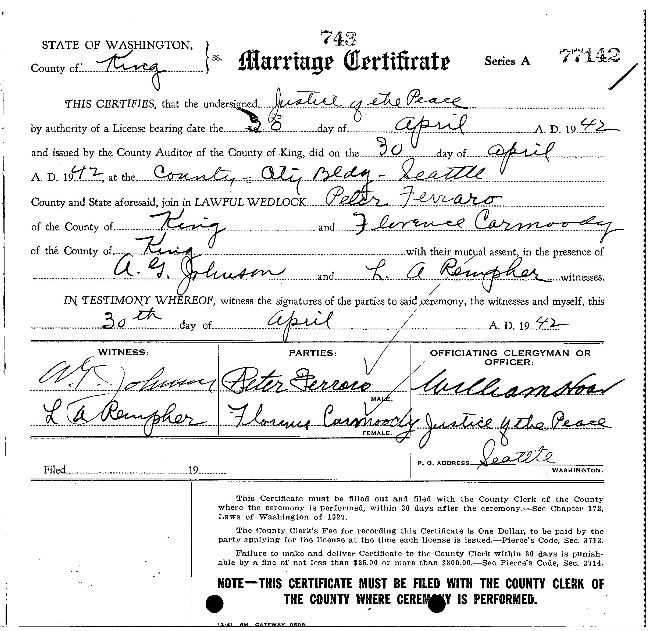 743
STATE OF WASHINGTON,
County of King ss. Marriage Certificate Series A 77142
THIS CERTIFIES, that the undersigned Justice of the Peace
by authority of a License bearing date the 28 day of April A. D. 1942
and issued by the County Auditor of the County of King, did on the 30 day of April
A. D. 1942, at the County-City Bldg - Seattle
County and State aforesaid, join in LAWFUL WEDLOCK Peter Ferraro
of the County of King and Florence Carmoody
of the County of King with their mutual assent, in the presence of
A. G. Johnson and L A Rempher witnesses.
IN TESTIMONY WHEREOF, witness the signatures of the parties to said ceremony, the witnesses and myself, this
30th day of April A. D. 1942
WITNESS: PARTIES: OFFICIATING CLERGYMAN OR OFFICER:
A G Johnson Peter Ferraro William Hoar
MALE.
L A Rempher Florence Carmoody Justice of the Peace
FEMALE.
P. O. ADDRESS Seattle
WASHINGTON.
Filed 19
This Certificate must be filled out and filed with the County Clerk of the County
where the ceremony is performed, within 30 days after the ceremony.—See Chapter 172,
Laws of Washington of 1927.
The County Clerk's Fee for recording this Certificate is One Dollar, to be paid by the
party applying for the license at the time each license is issued.—Pierce's Code, Sec. 3713.
Failure to make and deliver Certificate to the County Clerk within 30 days is punish-
able by a fine of not less than $25.00 or more than $300.00.—See Pierce's Code, Sec. 3714.
NOTE—THIS CERTIFICATE MUST BE FILED WITH THE COUNTY CLERK OF
THE COUNTY WHERE CEREMONY IS PERFORMED.